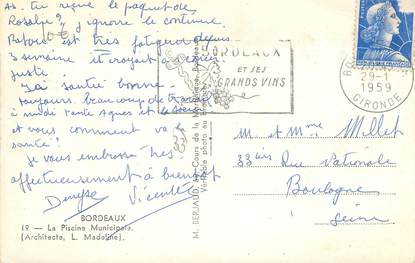 As-tu reçu le paquet de
Rosalie? j'ignore le contenu
Retour est très fatigué depuis
3 semaine et croyait
juste.
J'ai santé bonne.
toujours beaucoup de travail
à midi tante Agnès et
et vous comment va la
santé!
Je vous embrasse très
affectueusement à bientôt
Denyse Vicente
BORDEAUX
19 - La Piscine Municipale.
(Architecte, L. Madoline).
M. BERJAUD, Cours de la
Véritable photo au
BORDEAUX
ET SES
GRANDS VINS
29-1
1959
GIRONDE
M. et Mme Millet
33 bis Rue Nationale
Boulogne
Seine